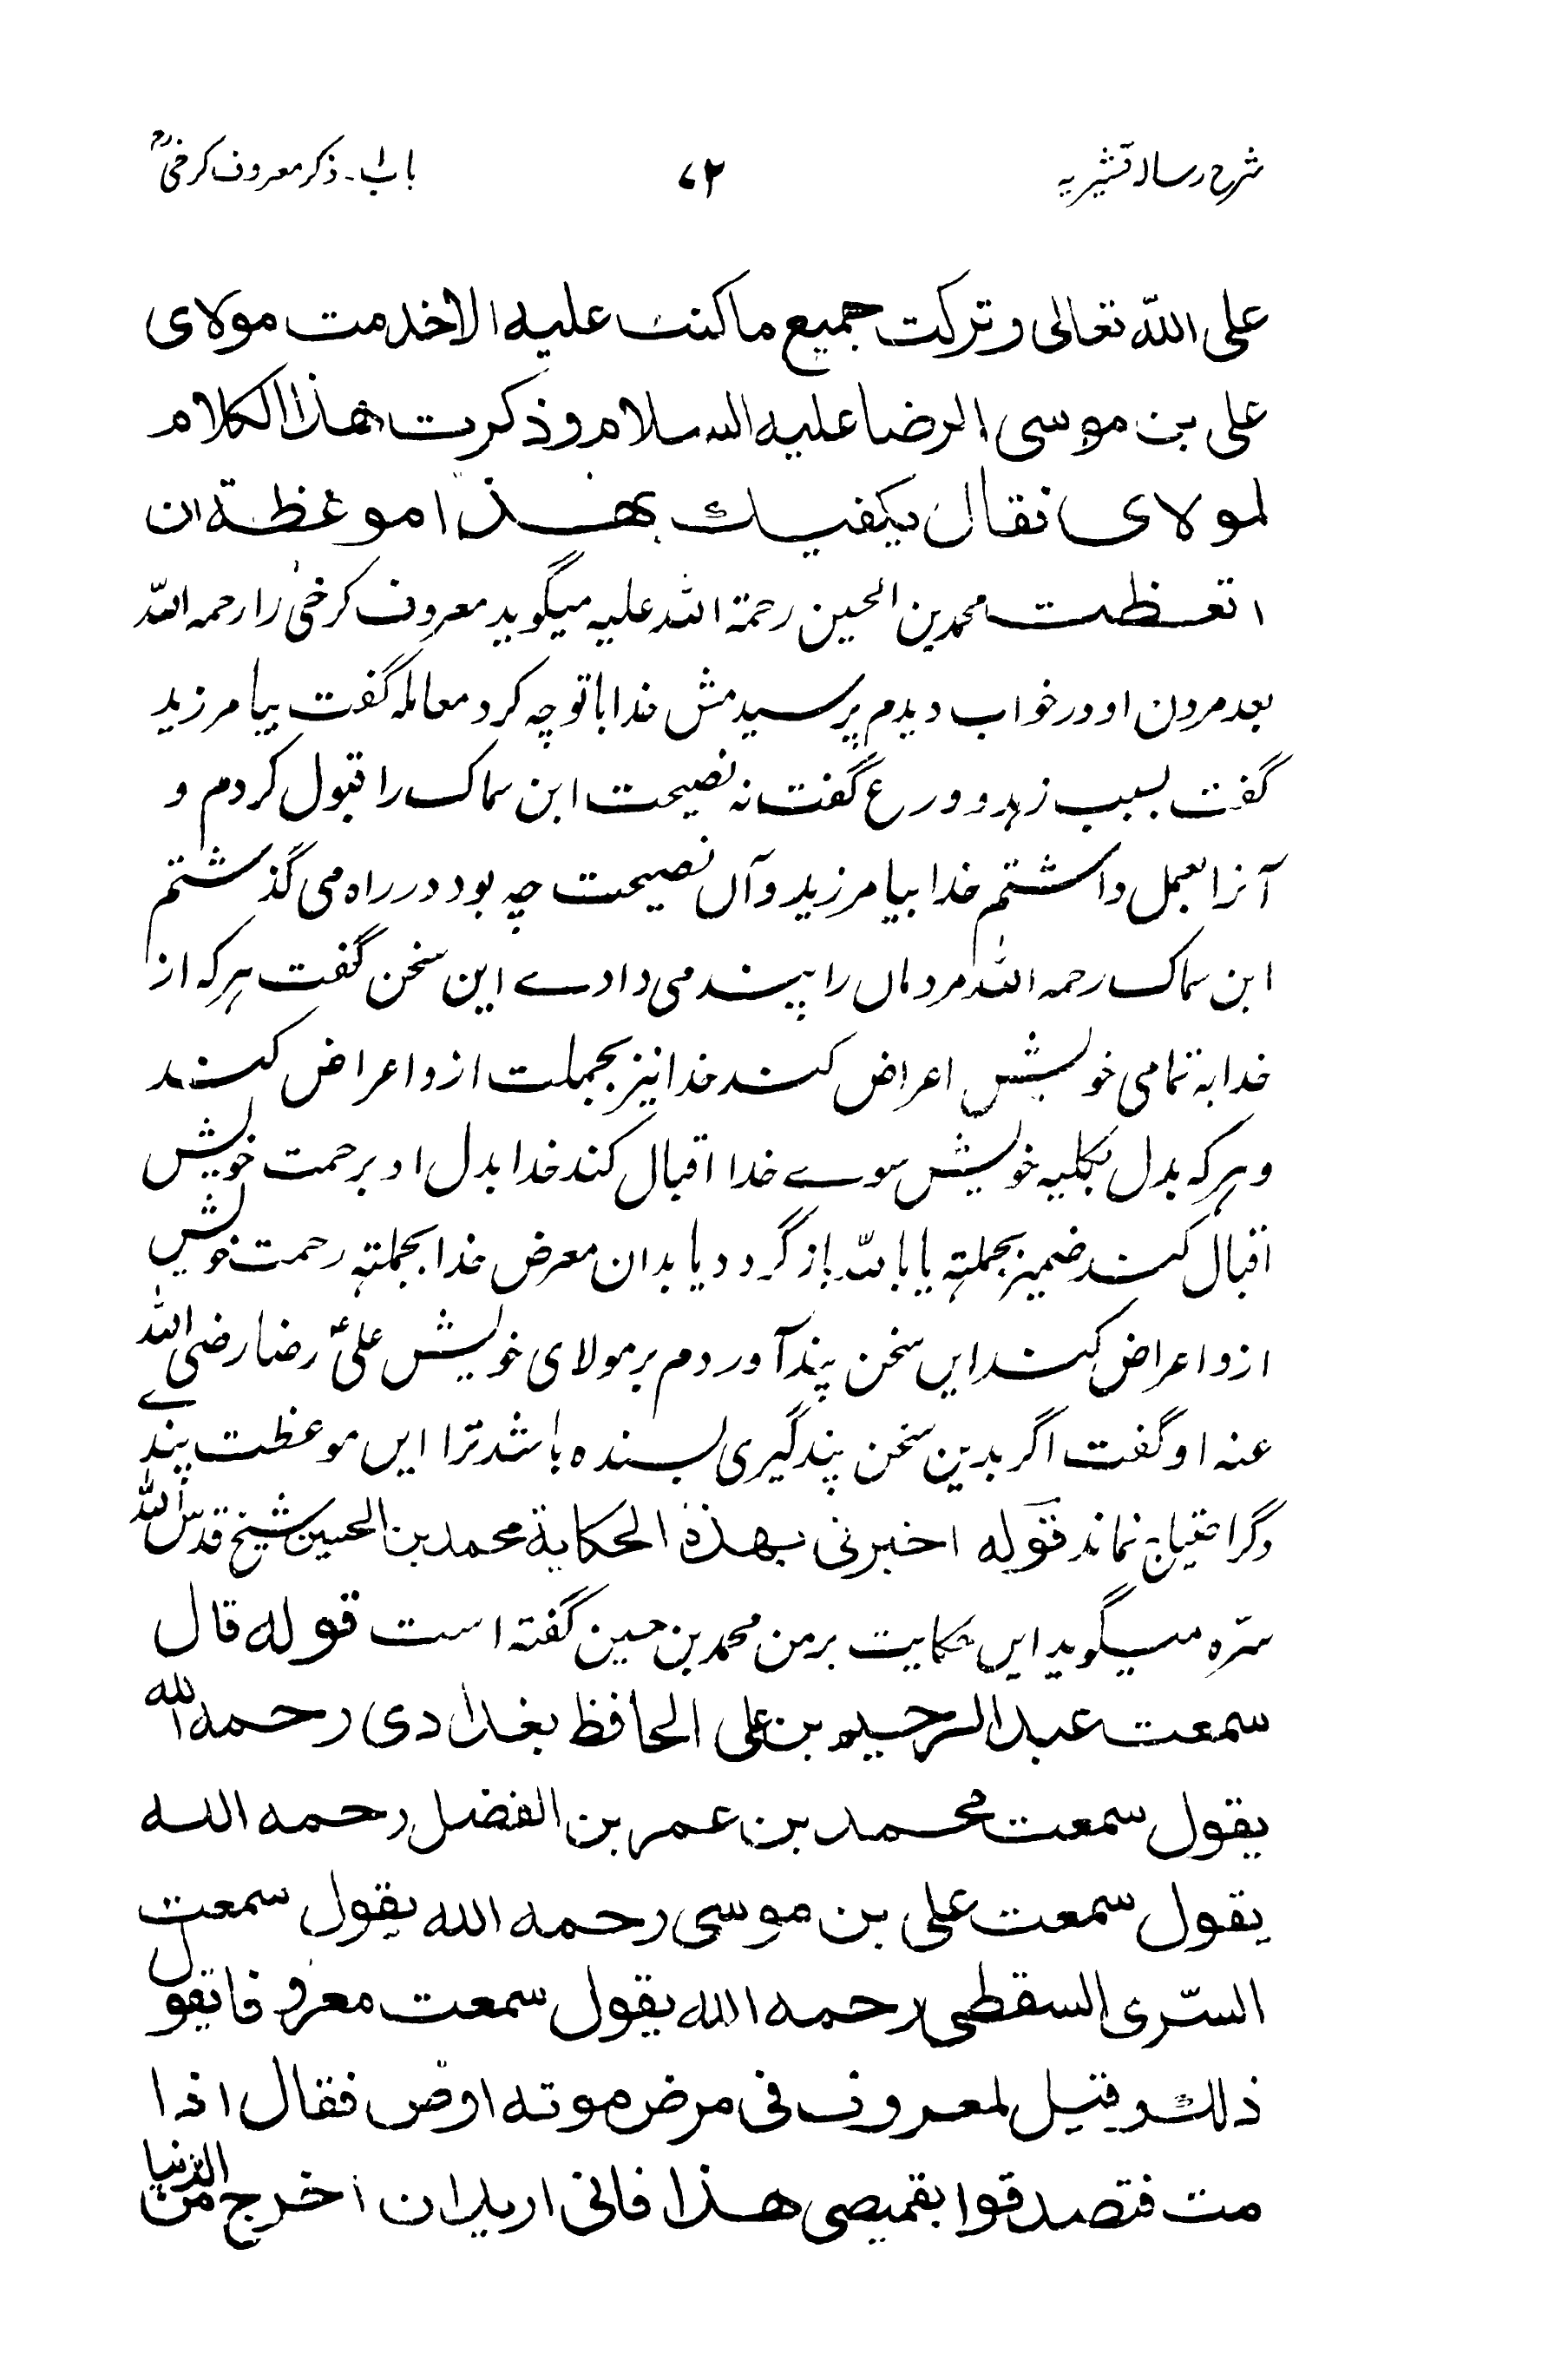 شرح رسالہ قشیریہ ۷۲ باب۱۔ ذکر معروف کرخیؒ
علی اللّٰہ تعالی وترکت جمیع ماکنت علیہ الاخدمت مولای
علی بن موسی الرضا علیہ السلام وذکرت ھذا الکلام
لمولای فقال یکفیك بھذا موعظۃ ان
اتعظت محمد بن الحسین رحمۃ اللہ علیہ میگوید معروف کرخیؒ را رحمہ اللّٰہ
بعد مردن او در خواب دیدم پرسیدمش خدا با تو چہ کرد معاملہ گفت بیامرزید
گفت بسبب زہد و ورع گفت نہ نصیحت ابن سماک را قبول کردم و
آنرا بعمل داشتم خدا بیامرزید وآں نصیحت چہ بود در راہ می گذشتم
ابن سماک رحمہ اللہ مردماں را پند می داد سے این سخن گفت ہرکہ از
خدا بہ تمامی خویش اعراض کند خدا نیز بجملت ازو اعراض کند
وہرکہ بدل بکلیہ خویش سوے خدا اقبال کند خدا بدل او برحمت خویش
اقبال کند ضمیر بجملتہ یا باللہ باز گردد یا بدان معرض خدا بجملتہ رحمت خویش
ازو اعراض کند ایں سخن پند آوردم بر مولای خویش علیؑ رضا رضی اللہ
عنہ او گفت اگر بدین سخن پند گیری بسندہ باشد ترا ایں موعظت پندے
دگر احتیاج نماند قولہ اخبرنی بھذہ الحکایۃ محمد بن الحسین شیخ قدس اللہ
سرّہ میگوید ایں حکایت بر من محمد بن حسین گفتہ است قولہ قال
سمعت عبدالرحیم بن علی الحافظ بغدادی رحمہ اللہ
یقول سمعت محمد بن عمر بن الفضل رحمہ اللہ
یقول سمعت علی بن موسی رحمہ اللہ یقول سمعت
السّری السقطی رحمہ اللہ یقول سمعت معروفا یقول
ذلك وقیل لمعروف فی مرض موتہ اوص فقال اذا
مت فتصدقوا بقمیصی ھذا فانی ارید ان اخرج من الدنیا